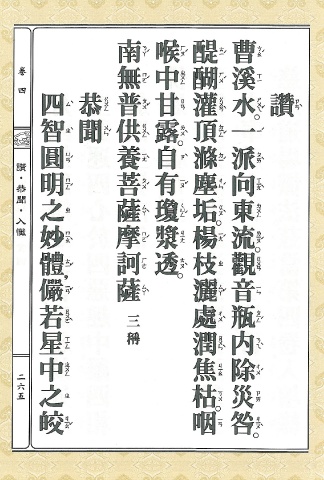 讚
曹溪水。一派向東流。觀音瓶內除災咎。
醍醐灌頂滌塵垢。楊枝灑處潤焦枯。咽
喉中甘露。自有瓊漿透。
南無普供養菩薩摩訶薩 三稱
恭聞
四智圓明之妙體，儼若星中之皎
卷四
讚・恭聞・入懺
二六五